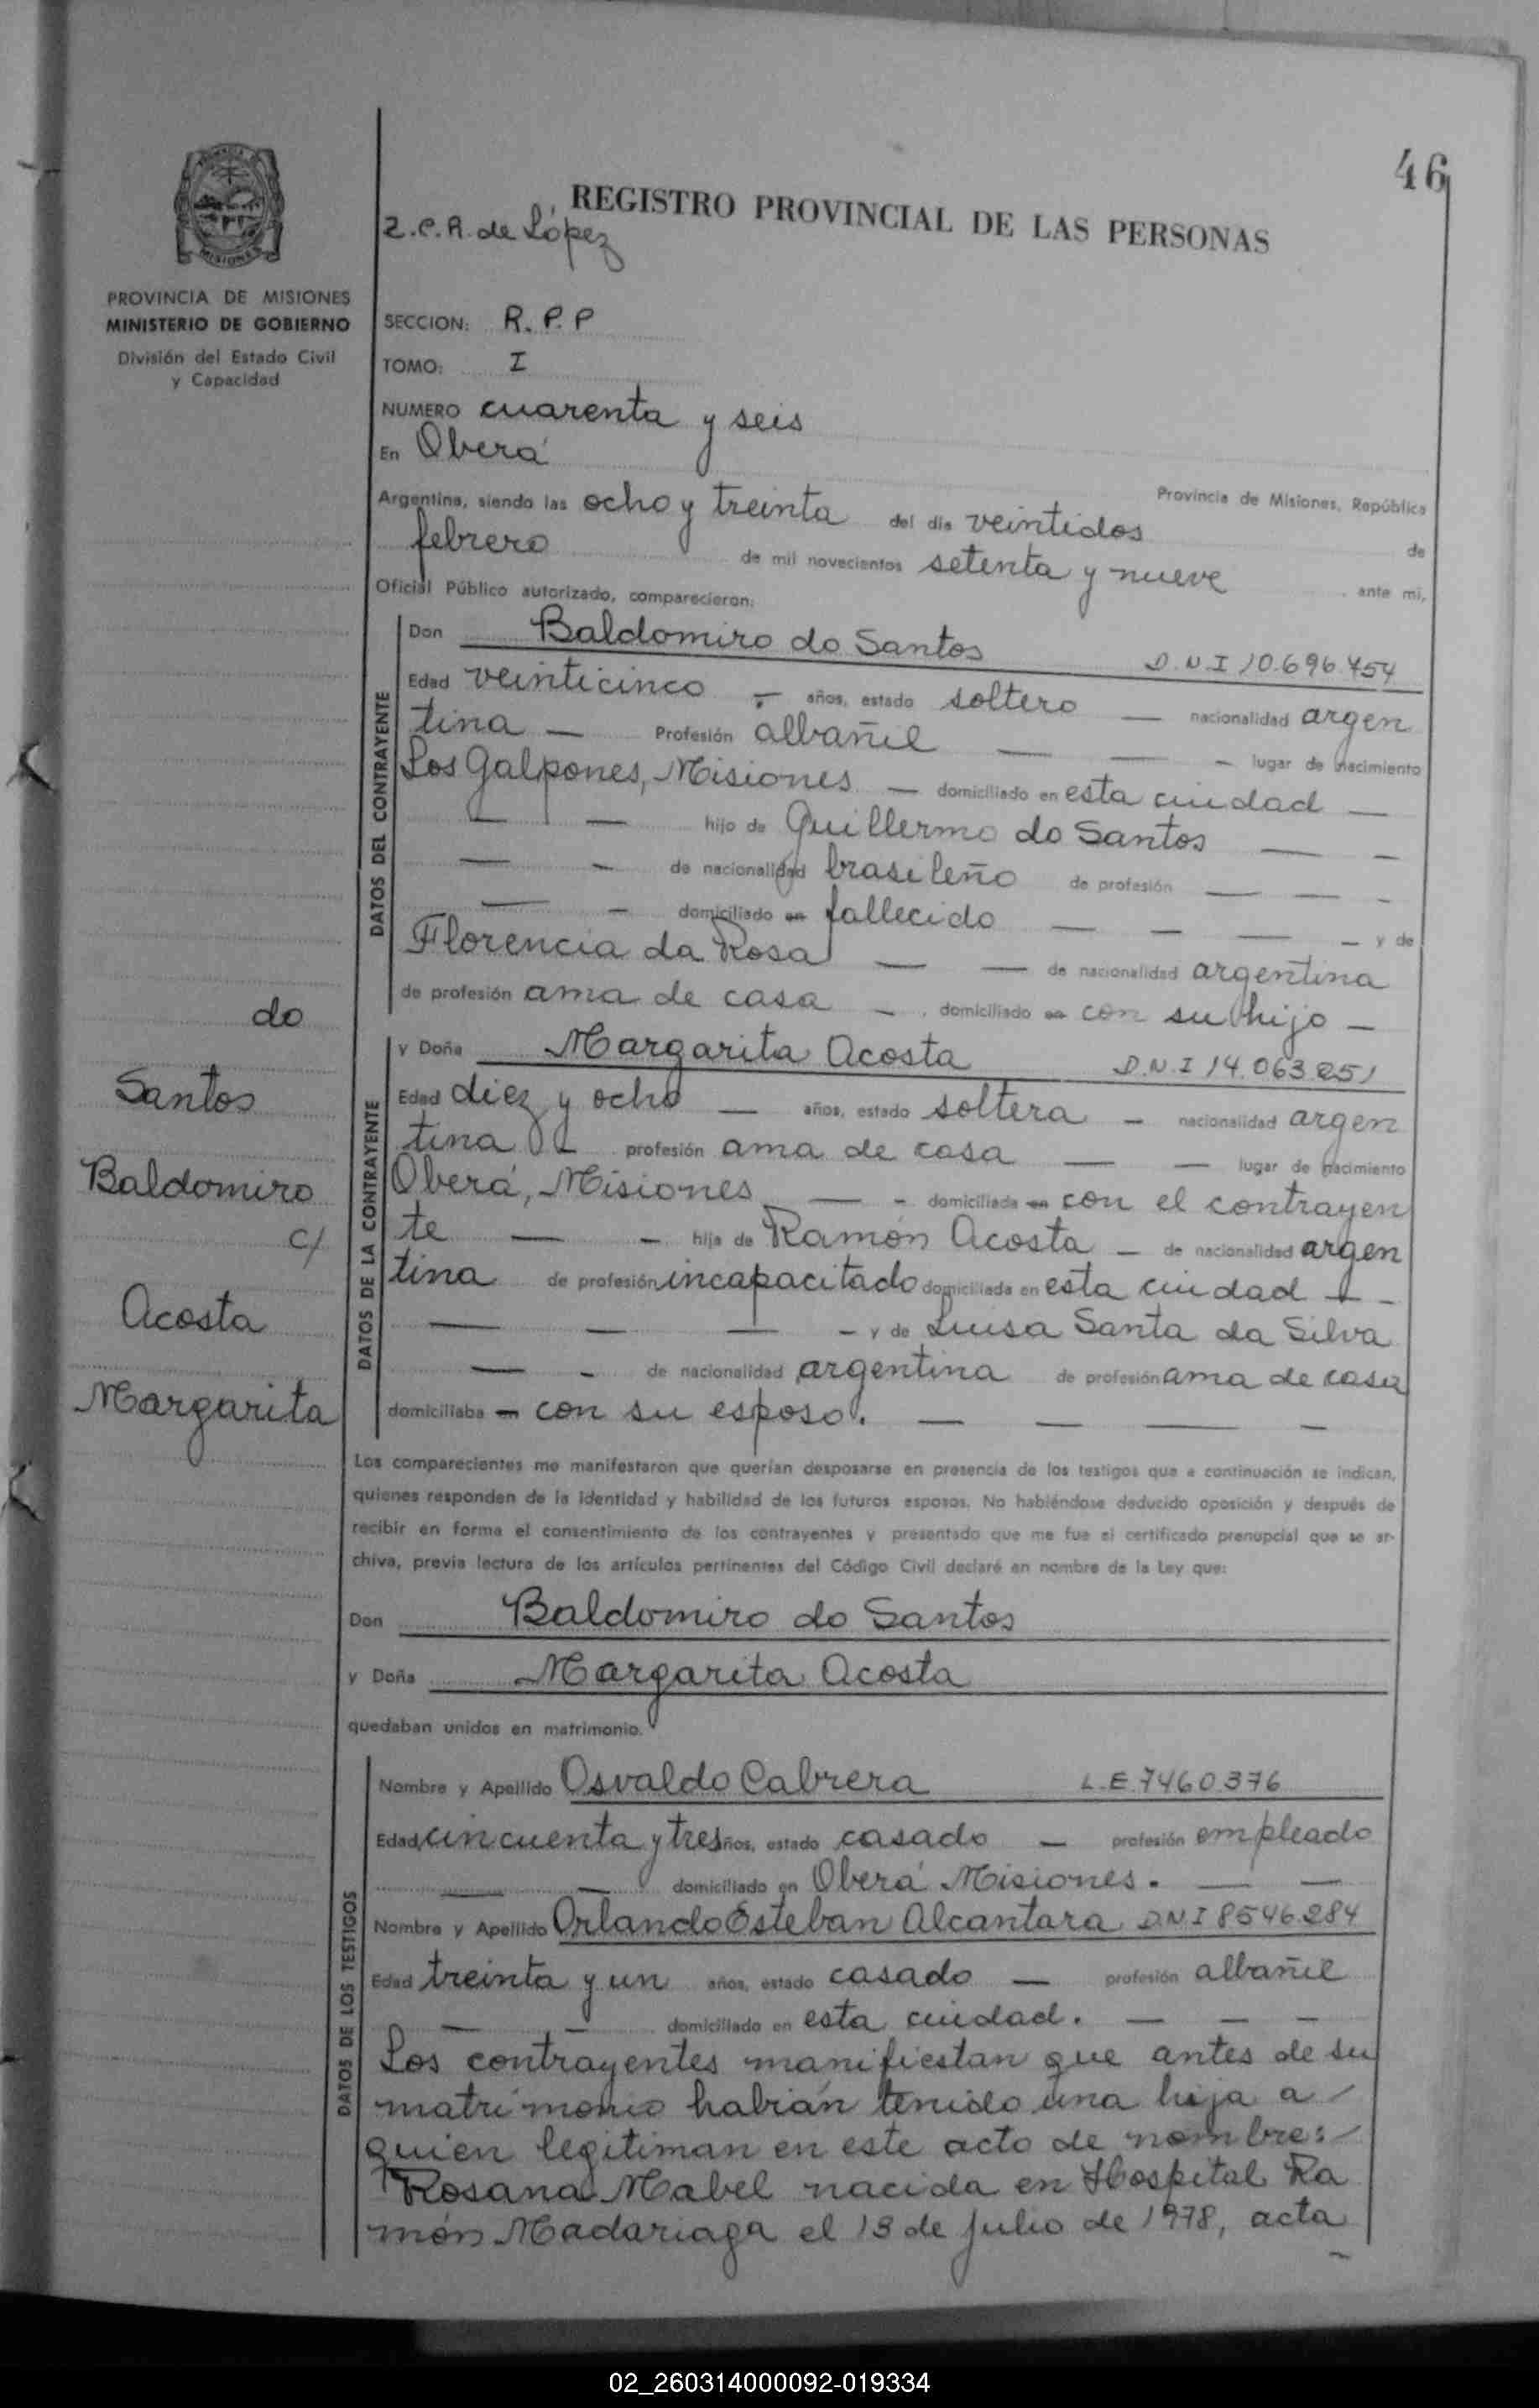 46
REGISTRO PROVINCIAL DE LAS PERSONAS
Z.C.R. de López
PROVINCIA DE MISIONES
MINISTERIO DE GOBIERNO
División del Estado Civil
y Capacidad
SECCION: R.P.P
TOMO: I
NUMERO cuarenta y seis
En Oberá Provincia de Misiones, República
Argentina, siendo las ocho y treinta del día veintidos de
febrero de mil novecientos setenta y nueve ante mi,
Oficial Público autorizado, comparecieron:
DATOS DEL CONTRAYENTE
Don Baldomiro do Santos D.N.I 10.696.454
Edad veinticinco — años, estado soltero — nacionalidad argen
tina — Profesión albañil — — — lugar de nacimiento
Los Galpones, Misiones — domiciliado en esta ciudad —
— — hijo de Guillermo do Santos — —
— — de nacionalidad brasileño de profesión — — —
— — domiciliado en fallecido — — — — y de
Florencia da Rosa — — de nacionalidad argentina
de profesión ama de casa — domiciliado en con su hijo —
do
Santos
Baldomiro
c/
Acosta
Margarita
DATOS DE LA CONTRAYENTE
y Doña Margarita Acosta D.N.I 14.063.251
Edad diez y ocho — años, estado soltera — nacionalidad argen
tina — profesión ama de casa — — lugar de nacimiento
Oberá, Misiones — — domiciliada en con el contrayen
te — — hija de Ramón Acosta — de nacionalidad argen
tina de profesión incapacitado domiciliada en esta ciudad — —
— — — — y de Luisa Santa da Silva
— — de nacionalidad argentina de profesión ama de casa
domiciliaba en con su esposo. — — — —
Los comparecientes me manifestaron que querían desposarse en presencia de los testigos que a continuación se indican,
quienes responden de la identidad y habilidad de los futuros esposos. No habiéndose deducido oposición y después de
recibir en forma el consentimiento de los contrayentes y presentado que me fue el certificado prenupcial que se ar-
chiva, previa lectura de los artículos pertinentes del Código Civil declaré en nombre de la Ley que:
Don Baldomiro do Santos
y Doña Margarita Acosta
quedaban unidos en matrimonio.
DATOS DE LOS TESTIGOS
Nombre y Apellido Osvaldo Cabrera L.E.7460.376
Edad cincuenta y tres años, estado casado — profesión empleado
— — domiciliado en Oberá Misiones. — —
Nombre y Apellido Orlando Esteban Alcantara D.N.I 8546.284
Edad treinta y un años, estado casado — profesión albañil
— — domiciliado en esta ciudad. — — —
Los contrayentes manifiestan que antes de su
matrimonio habían tenido una hija a
quien legitiman en este acto de nombre:
Rosana Mabel nacida en Hospital Ra
món Madariaga el 13 de julio de 1978, acta
02_260314000092-019334